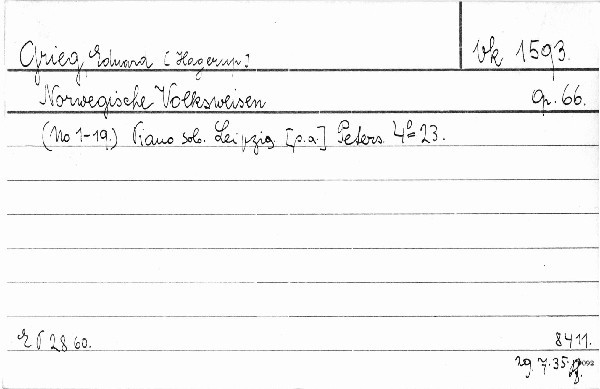 Grieg, Eduard [Hagerup] Vk 1593.
Norwegische Volksweisen Op. 66.
(No 1-19.) Piano solo. Leipzig [s.a.] Peters. 4° 23.
E P 2860. 8411.
29. 7. 35.